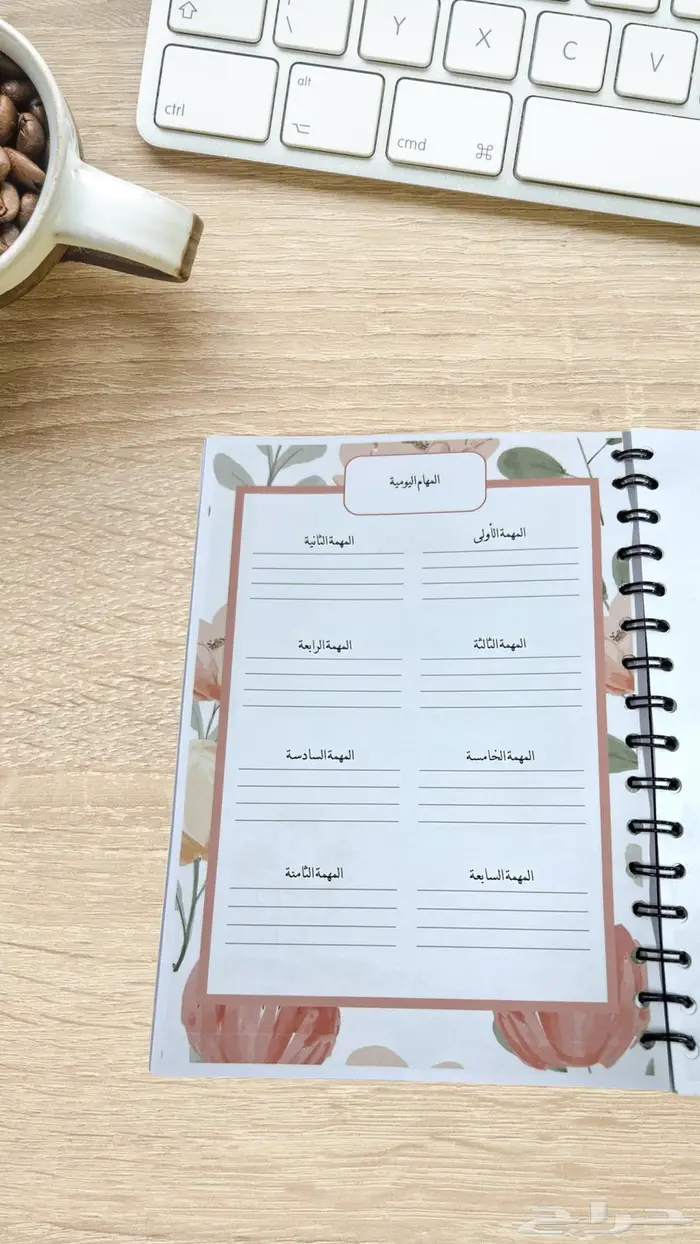 \ Y X C V
ctrl
alt
cmd ⌘
المهام اليومية
المهمة الأولى
المهمة الثانية
المهمة الثالثة
المهمة الرابعة
المهمة الخامسة
المهمة السادسة
المهمة السابعة
المهمة الثامنة
حراج